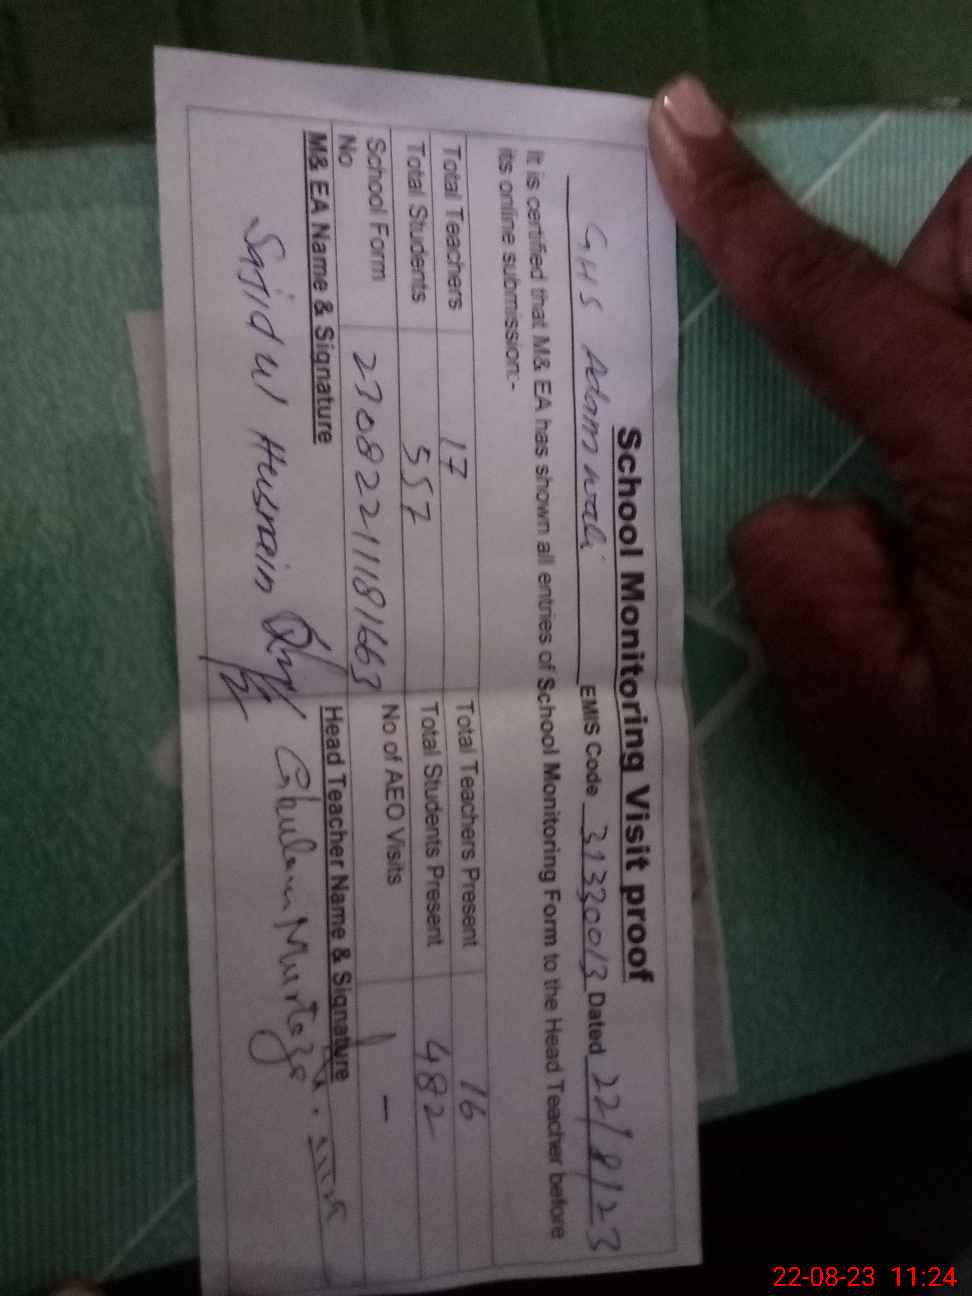 School Monitoring Visit proof
GHS Adam wali EMIS Code 31330013 Dated 22/8/23
It is certified that M& EA has shown all entries of School Monitoring Form to the Head Teacher before
its online submission:-
Total Teachers 17 Total Teachers Present 16
Total Students 557 Total Students Present 482
School Form No 23082211181663 No of AEO Visits 1 —
M& EA Name & Signature Head Teacher Name & Signature
Sajid ul Husnain Ghulam Murtaza
22-08-23 11:24